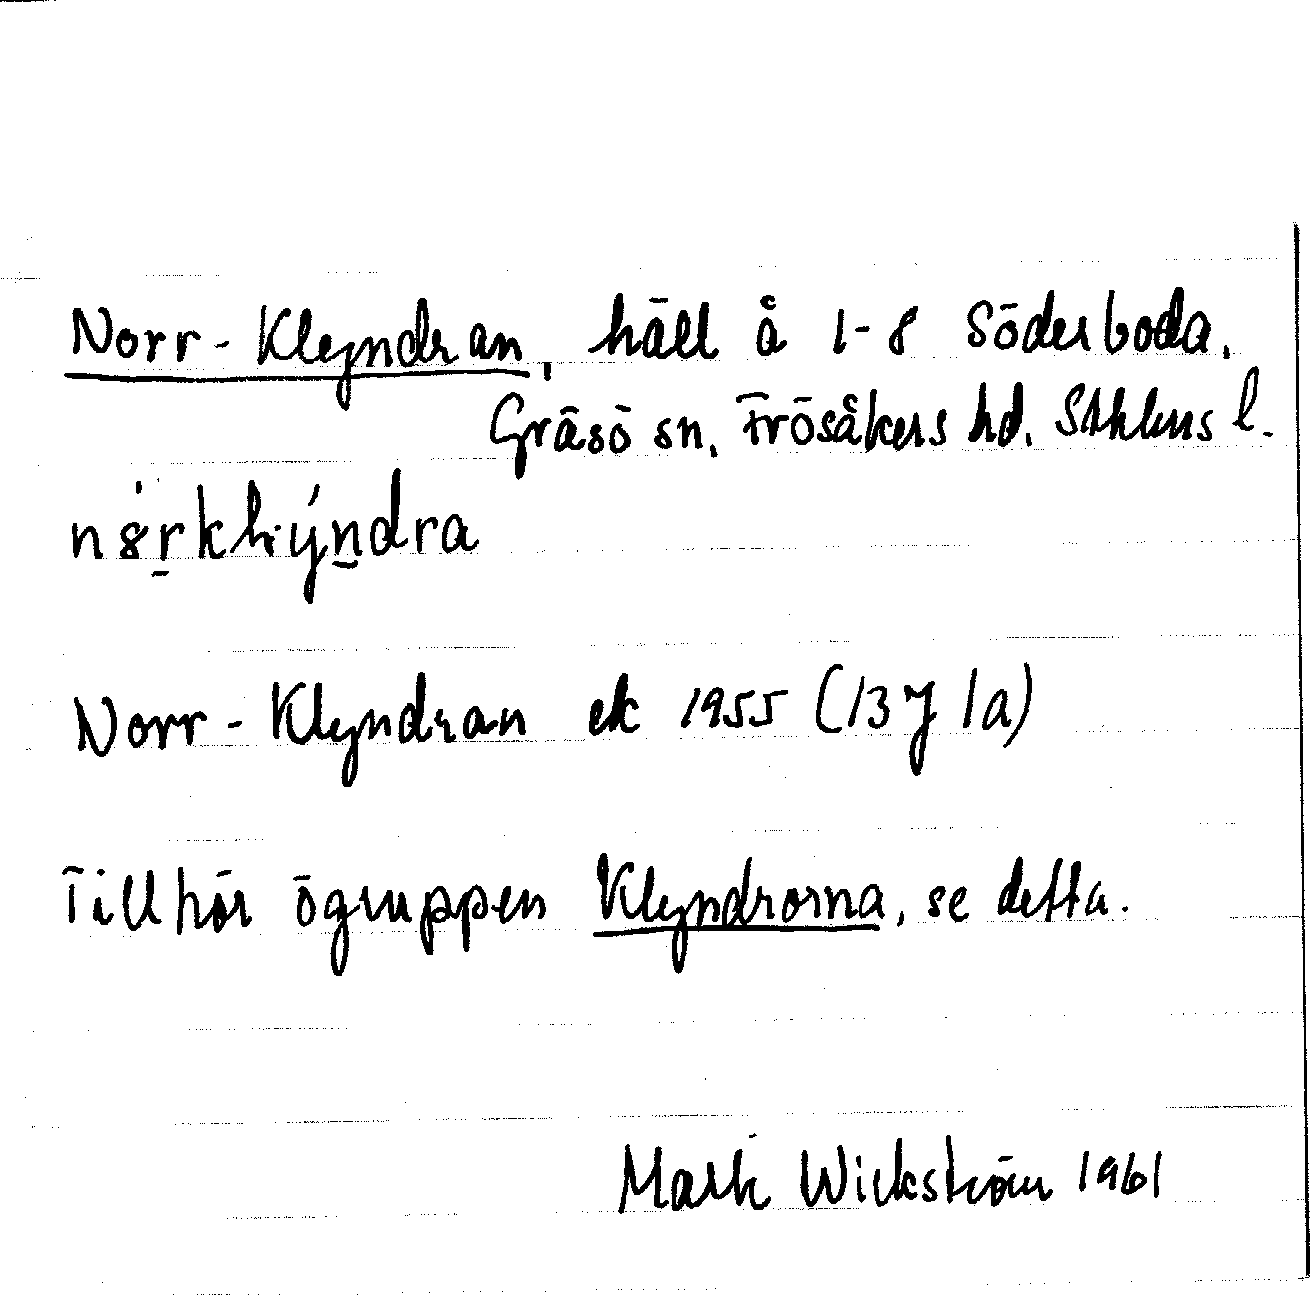 Norr-Klyndran, häll å 1-8 Söderboda,
Gräsö sn, Frösåkers hd, Sthlms l.
Norr-Klyndran ek 1955 (13 J 1a)
Tillhör ögruppen Klyndrorna, se detta.
Wickström 1961